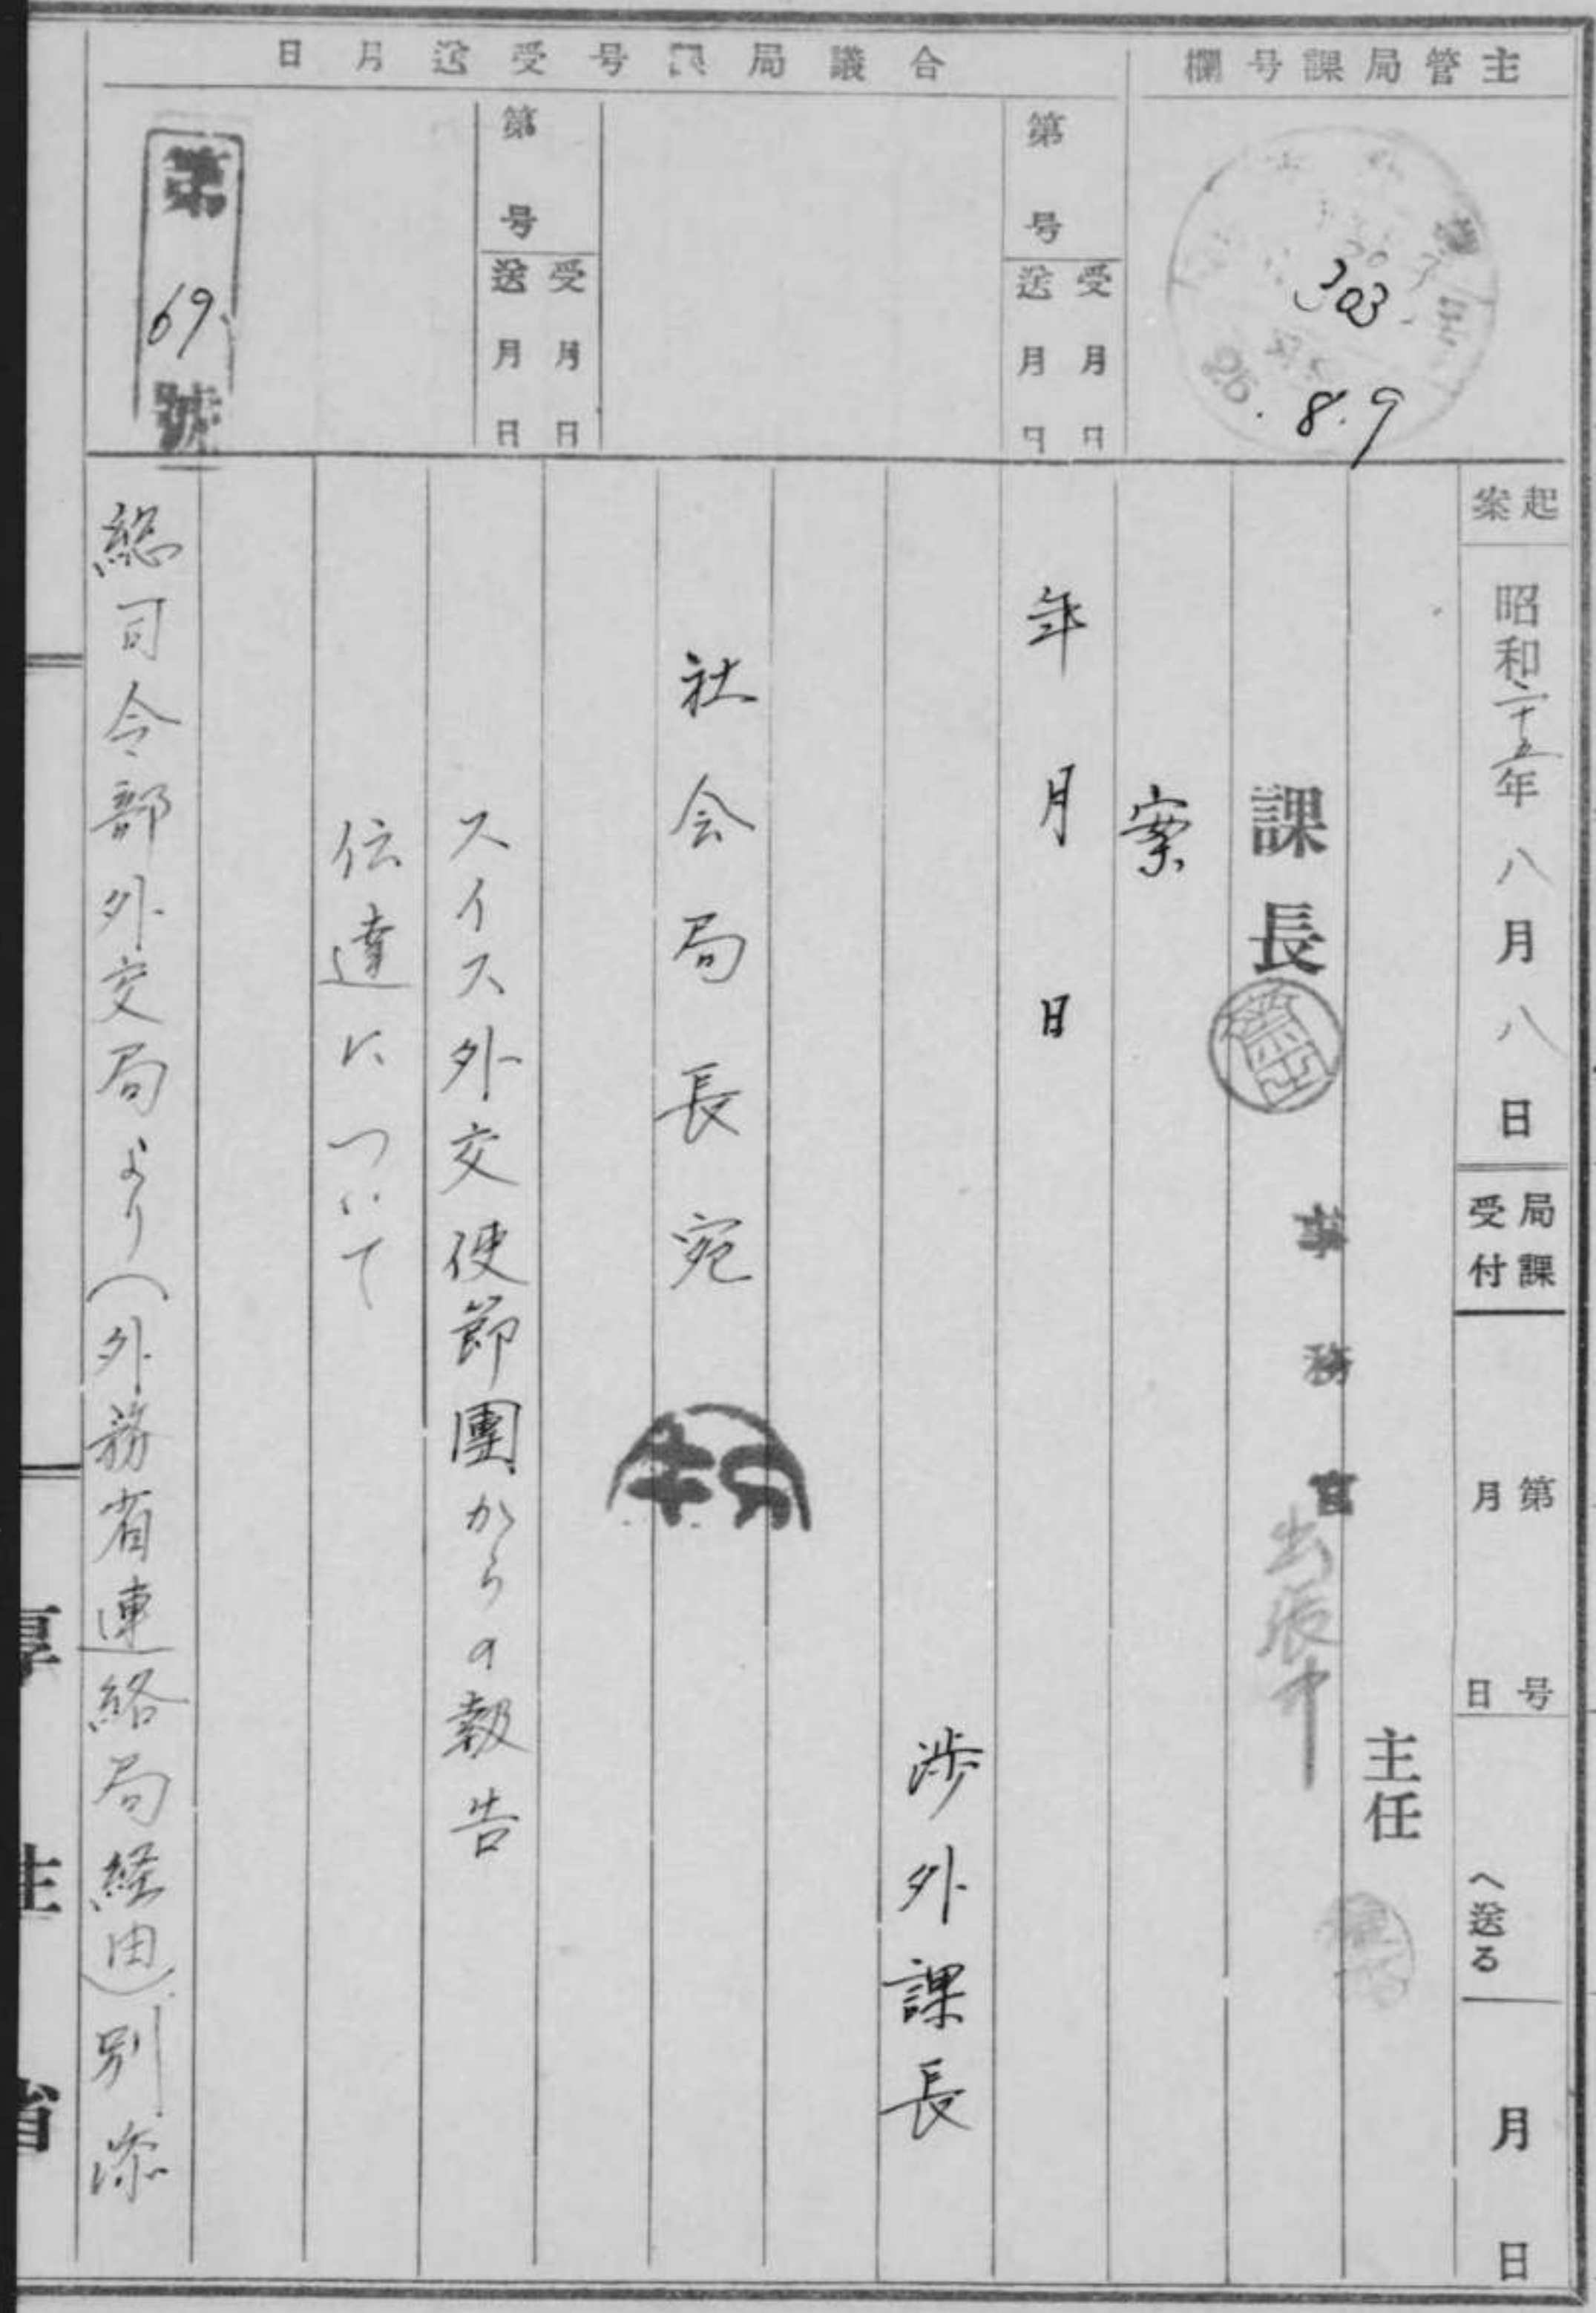 主管局課号欄
303
8.9
合議局課号受送月日
第 号
受 月 日
送 月 日
第 号
受 月 日
送 月 日
第69號
起案
昭和二十五年八月八日
局課受付
第 号
月 日
へ送る
月 日
主任
課長
事務官
出張中
案
年月日
渉外課長
社会局長宛
スイス外交使節團からの報告
伝達について
総司令部外交局より(外務省連絡局経由)別添
厚生省